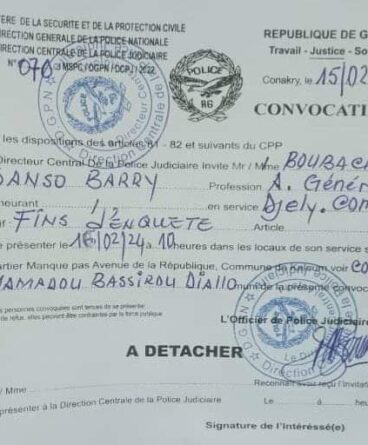 TÈRE DE LA SECURITE ET DE LA PROTECTION CIVILE
DIRECTION GENERALE DE LA POLICE NATIONALE
DIRECTION CENTRALE DE LA POLICE JUDICIAIRE
N° 070 MSPC / DGPN / DCPJ / 2022
POLICE
RG
REPUBLIQUE DE G
Travail - Justice - So
Conakry, le 15/02
CONVOCATI
les dispositions des articles 81 - 82 et suivants du CPP
Directeur Central De la Police Judiciaire Invite Mr / Mme BOUBACA
SANSO BARRY Profession A. Génér
eurant en service Djely.Com
FÎNS D'ENQUÊTE Article
présenter le 16/02/24 à 10 heures dans les locaux de son service s
artier Manque pas Avenue de la République, Commune de Kaloum voir CO
MAMADOU BASSIROU DIALLO muni de la présente convoca
personnes convoquées sont tenues de se présenter
de refus, elles peuvent être contraintes par la force publique
L'Officier de Police Judiciaire
A DETACHER
/ Mme Reconnait avoir reçu l'invitati
présenter à la Direction Centrale de la Police Judiciaire Le à heu
Signature de l'Intéressé(e)